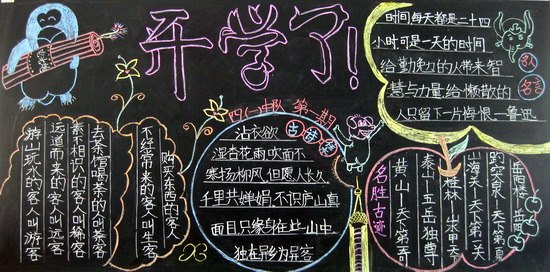 开学了!
时间每天都是二十四
小时可是一天的时间
给勤勉的人带来智
慧与力量给懒散的
人只留下一片悔恨—鲁迅
四(一)中队 第一期
沾衣欲
湿杏花雨吹面不
寒杨柳风 但愿人长久
千里共婵娟 不识庐山真
面目只缘身在此山中
独在异乡为异客
购买东西的客人
不经常来的客人叫生客
去茶馆喝茶的人叫茶客
素不相识的客人叫稀客
远道而来的客人叫远客
游山玩水的客人叫游客
名胜古迹
岳阳楼—岳阳
趵突泉—天下第一泉
山海关—天下第一关
桂林—山水甲天下
泰山—五岳独尊
黄山—天下第一奇